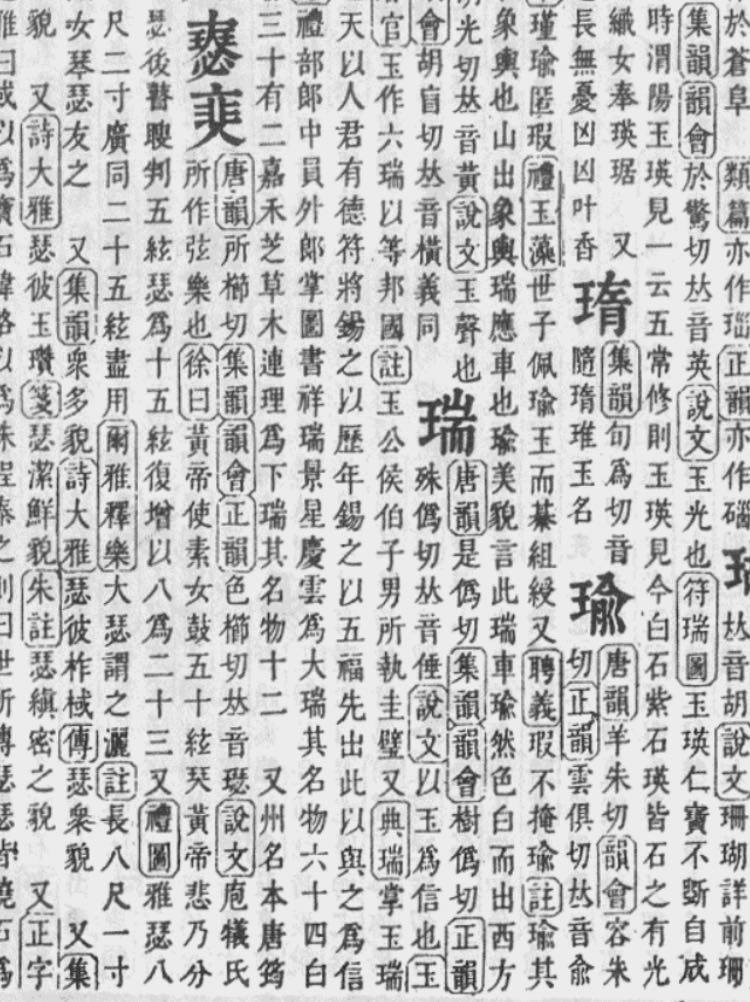 於蒼阜 類篇亦作瑙正韻亦作碯
𠀤音胡說文珊瑚詳前珊
集韻韻會於驚切𠀤音英說文玉光也符瑞圖玉瑛仁寶不斷自成
時渭陽玉瑛見一云五常修則玉瑛見今白石紫石瑛皆石之有光
織女奉瑛琚 又
長無憂凶凶叶香
集韻句爲切音
隨琟玉名
瑜
唐韻羊朱切韻會容朱
切正韻雲俱切𠀤音兪
瑾瑜匿瑕禮玉藻世子佩瑜玉而綦組綬又聘義瑕不掩瑜註瑜其
象輿也山出象輿瑞應車也瑜美貌言此瑞車瑜然色白而出西方
光切𠀤音黃說文玉聲也
會胡盲切𠀤音橫義同
瑞
唐韻是僞切集韻韻會樹僞切正韻
殊僞切𠀤音倕說文以玉爲信也玉
官玉作六瑞以等邦國註玉公侯伯子男所執圭璧又典瑞掌玉瑞
天以人君有德符將錫之以歷年錫之以五福先出此以與之爲信
禮部郞中員外郞掌圖書祥瑞景星慶雲爲大瑞其名物六十四白
三十有二嘉禾芝草木連理爲下瑞其名物十二 又州名本唐筠
唐韻所櫛切集韻韻會正韻色櫛切𠀤音璱說文庖犧氏
所作弦樂也徐曰黃帝使素女鼓五十絃琴黃帝悲乃分
瑟後瞽瞍判五絃瑟爲十五絃復增以八爲二十三又禮圖雅瑟八
尺二寸廣同二十五絃盡用爾雅釋樂大瑟謂之灑註長八尺一寸
女琴瑟友之 又集韻衆多貌詩大雅瑟彼柞棫傳瑟衆貌 又集
貌 又詩大雅瑟彼玉瓚箋瑟潔鮮貌朱註瑟縝密之貌 又正字